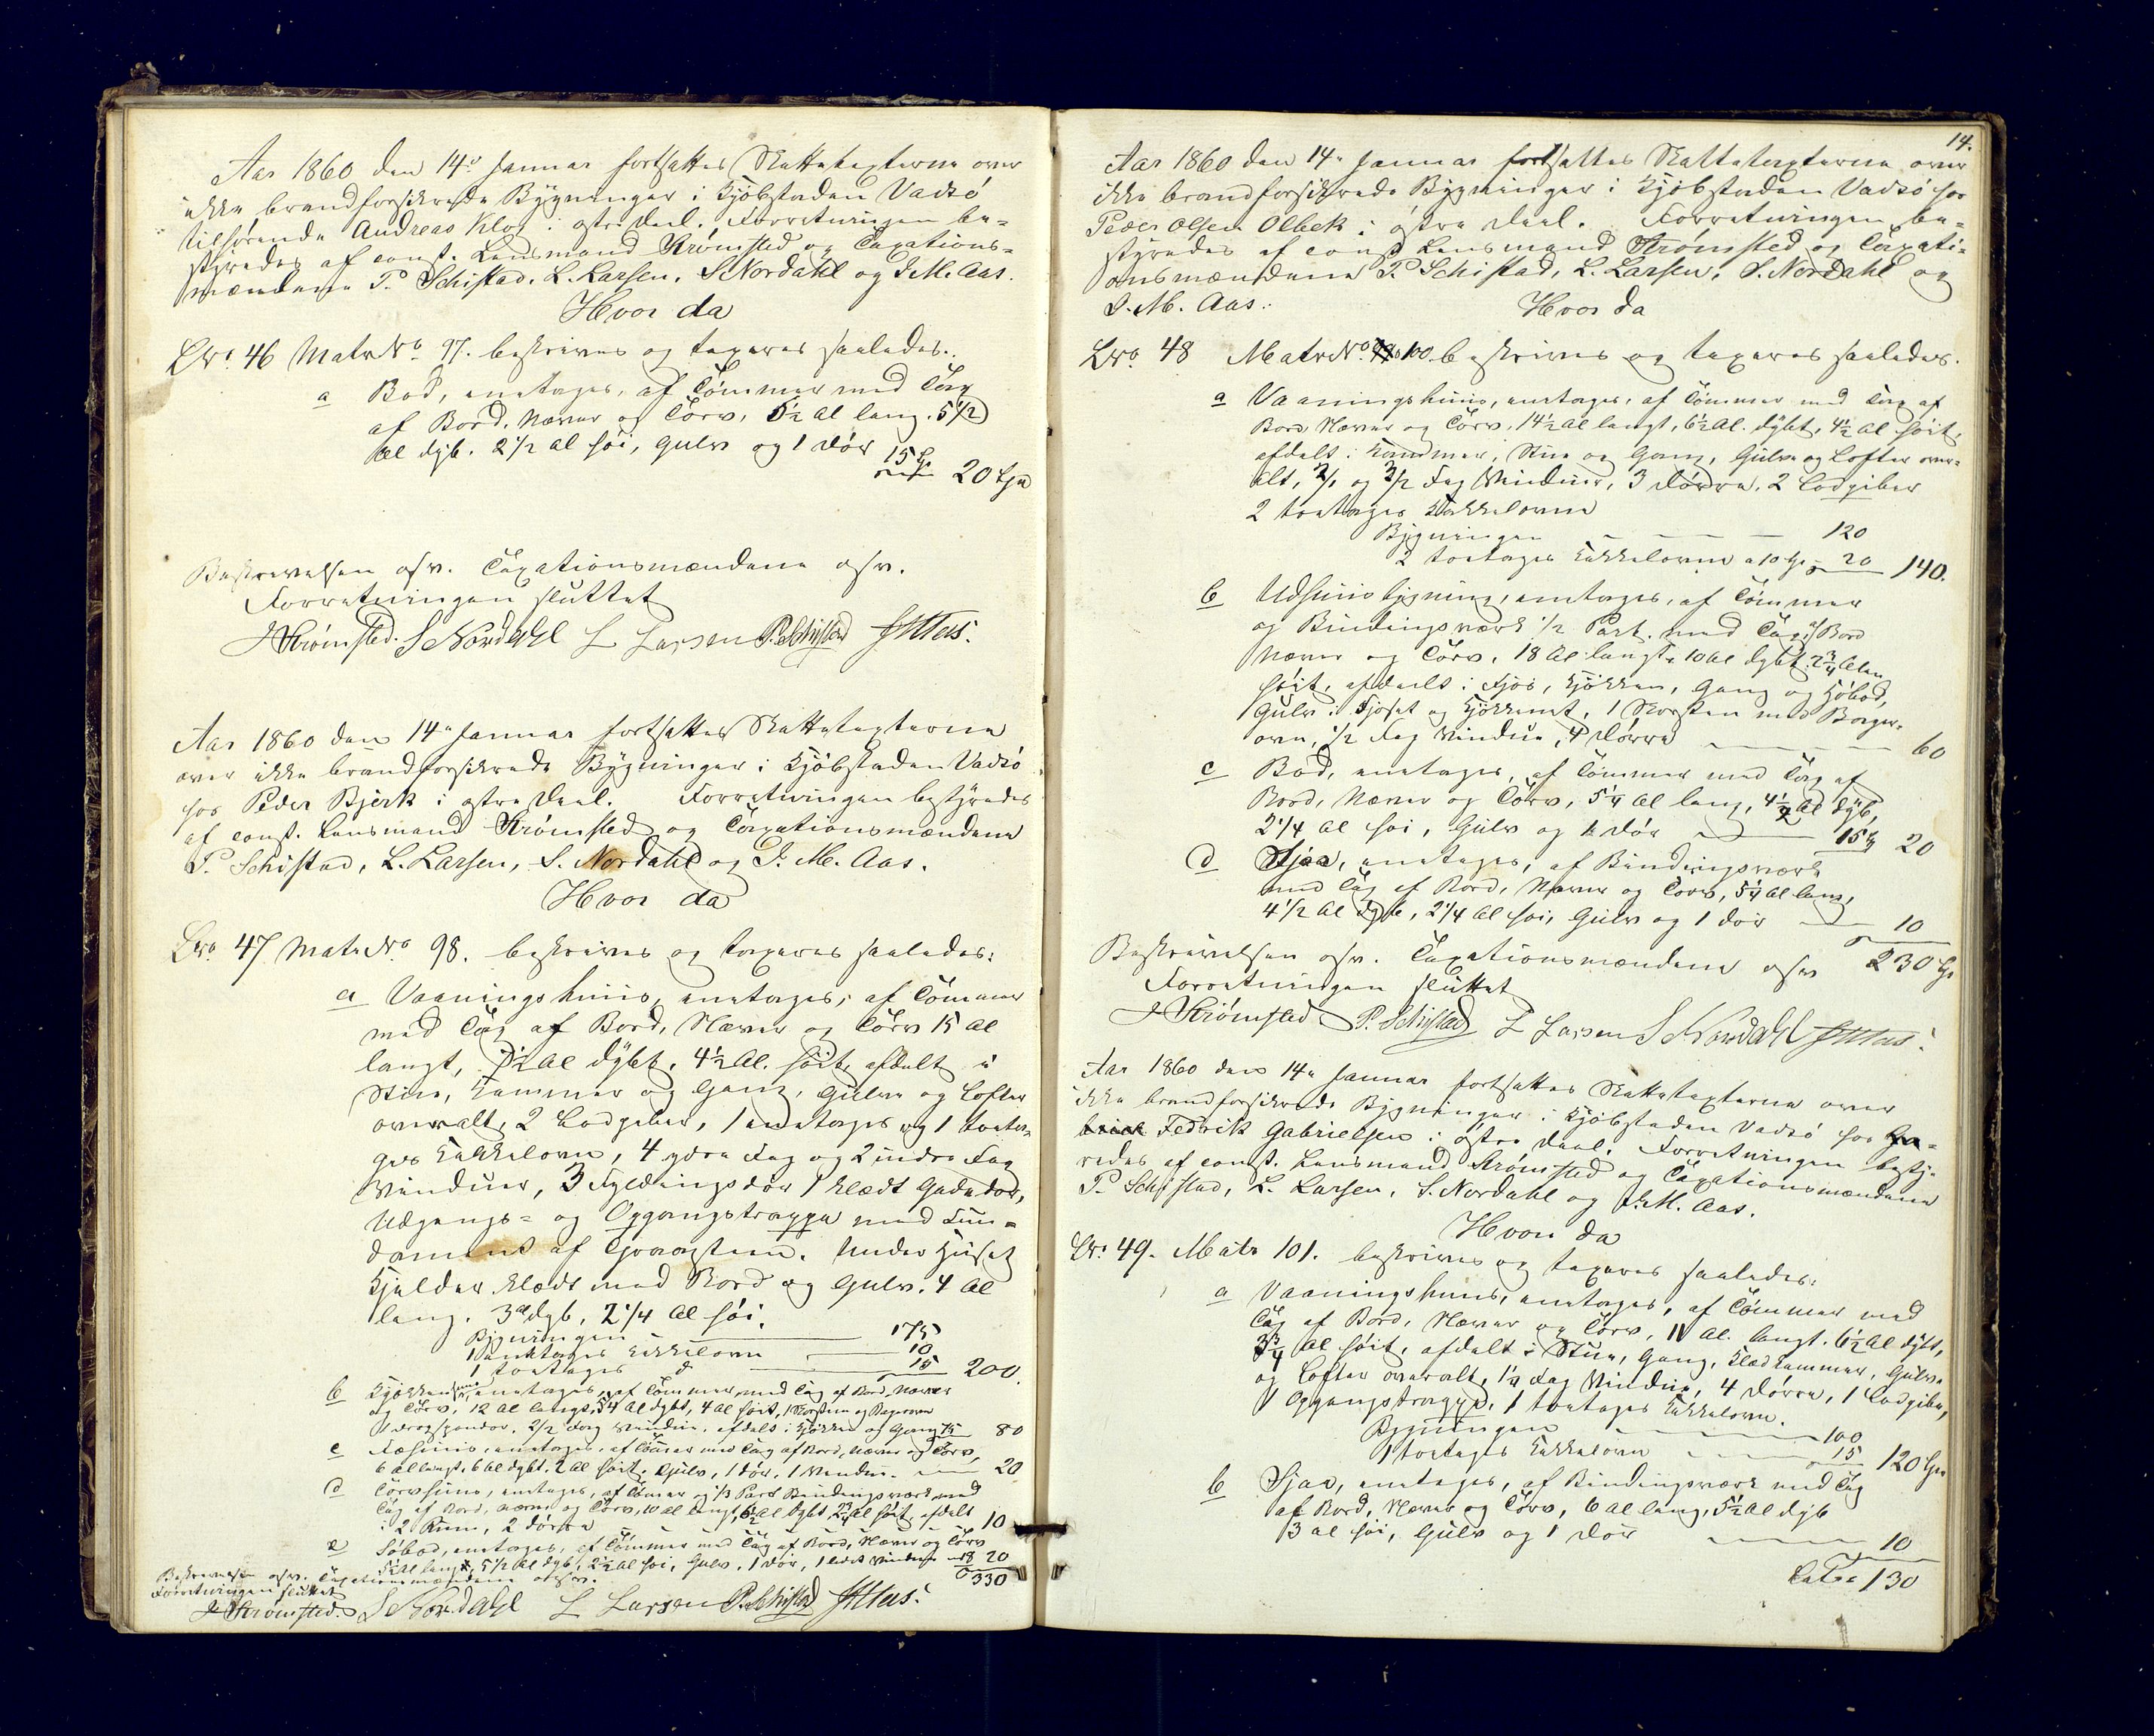 Aar 1860 den 14de Januar fortsattes Skattetaxterne over
ikke brandforsikrede Bygninger i Kjöbstaden Vadsö
tilhörende Andreas Klog i östre Deel. Forretningen be-
styredes af const. Lensmand Strømsted og Taxations-
mændene P. Schistad, L. Larsen, S. Nordahl og J. M. Aas.
Hvor da
Lno 46 Matr No 97. beskrives og taxeres saaledes:
a Bod, enetages, af Tömmer med Tag
af Bord, Næver og Törv, 5 1/2 Al lang. 5 1/2
Al dyb. 2 1/2 Al höi, Gulv og 1 Dör
15
20
Beskrivelsen osv. Taxationsmændene osv.
Forretningen sluttet
J Strömsted. S Nordahl L Larsen P. Schistad JMAas.
Aar 1860 den 14de Januar fortsattes Skattetaxterne
over ikke brandforsikrede Bygninger i Kjöbstaden Vadsö
hos Peder Bjerk i östre Deel. Forretningen bestyredes
af const. Lensmand Strømsted og Taxationsmændene
P. Schistad, L. Larsen, S. Nordahl og J. M. Aas.
Hvor da
Lno 47 Matr No 98. beskrives og taxeres saaledes:
a Vaaningshuus, enetages, af Tömmer
med Tag af Bord, Næver og Törv 15 Al
langt, 7 1/2 Al dybt, 4 1/2 Al. höit, afdelt i
Stue, Kammer og Gang, Gulve og Lofter
overalt, 2 Lodpiber, 1 enetages og 1 toeta-
ges Kakkelovn, 4 ydre Fag og 2 indre Fag
Vinduer, 3 Fyldingsdör 1 klædt Gadedör,
Udgangs- og Opgangstrappe med Fun-
dament af Graasteen. Under Huset
Kjelder klædt med Bord og Gulv. 4 Al
lang. 3 Al dyb, 2 1/4 Al höi.
Bygningen 175
1 enetages Kakkelovn 10
1 toetages d 15 200.
b Kjökken enetages, af Tömmer med Tag af Bord, Næver
og Törv, 12 Al langt, 5 1/4 Al dybt, 4 Al höit, 1 Skorsteen og Bagerovn
2/2 Fag Vindue, afdelt i Kjökken og Gang 75 80
c Fæhuus, enetages, af Tömmer med Tag af Bord, Næver og Törv,
6 Al langt, 6 Al dybt. 2 Al höit, Gulv, 1 Dör, 1 Vindue. 20
d Törvhuus, enetages, af Tömmer og 1/3 Part Bindingsværk med
Tag af Bord, Næver og Törv, 10 Al langt, 6 1/2 Al dybt 2 3/4 Al höit, afdelt
i 2 Rum, 2 Dörre 10
e Söbod, enetages, af Tömmer med Tag af Bord, Næver og Törv
5 1/2 Al lang, 5 1/2 Al dyb, 2 1/2 Al höi, Gulv, 1 Dör, 1 Vindue 18 20
330
Beskrivelsen osv. Taxationsmændene osv.
Forretningen sluttet
J Strömsted. S Nordahl L Larsen P. Schistad JMAas.
14.
Aar 1860 den 14de Januar fortsattes Skattetaxterne over
ikke brandforsikrede Bygninger i Kjöbstaden Vadsö hos
Peder Olsen Olbek i östre Deel. Forretningen be-
styredes af const Lensmand Strømsted og Taxati-
onsmændene P. Schistad, L. Larsen, S. Nordahl og
J. M. Aas. Hvor da
Lno 48 Matr No 100. beskrives og taxeres saaledes.
a Vaaningshuus, enetages, af Tömmer med Tag af
Bord Næver og Törv, 14 1/2 Al langt, 6 1/2 Al. dybt, 4 1/2 Al höit,
afdelt i Kammer, Stue og Gang, Gulve og Lofter over-
alt, og 3/2 Fag Vinduer, 3 Dörre, 2 Lodpiber
2 toetages Kakkelovne
Bygningen 120
2 toetages Kakkelovne a 10 20 140.
b Udhuusbygning, enetages, af Tömmer
og Bindingsværk 1/2 Part. med Tag af Bord
Næver og Törv, 18 Al langt, 10 Al dybt. 2 3/4 Alen
höit, afdeelt i Fjös, Kjökken, Gang og Söbod,
Gulv i Fjöset og Kjökkenet, 1 Skorsten med Bager-
ovn, 1/2 Fag Vindue, 4 Dörre 60
c Bod, enetages, af Tömmer med Tag af
Bord, Næver og Törv, 5 1/4 Al lang, 4 1/2 Al dyb,
2 1/4 Al höi, Gulv og 1 Dör 15 20
d Sjaa, enetages, af Bindingsværk
med Tag af Bord, Næver og Törv, 5 1/4 Al lang,
4 1/2 Al dyb, 2 1/4 Al höi, Gulv og 1 Dör 10
Beskrivelsen osv. Taxationsmændene osv 230
Forretningen sluttet
J Strömsted P. Schistad L Larsen S Nordahl JMAas.
Aar 1860 den 14de Januar fortsattes Skattetaxterne over
ikke brandforsikrede Bygninger i Kjöbstaden Vadsö hos
Fedrik Gabrielsen i östre Deel. Forretningen besty-
redes af const. Lensmand Strømsted og Taxationsmændene
P. Schistad, L. Larsen, S. Nordahl og J. M. Aas.
Hvor da
Lno 49. Matr 101. beskrives og taxeres saaledes:
a Vaaningshuus, enetages, af Tömmer med
Tag af Bord, Næver og Törv, 11 Al. langt. 6 1/2 Al dybt,
3 3/4 Al höit, afdelt i Stue, Gang, Klædkammer, Gulve
og Lofter overalt, Fag Vindue, 4 Dörre, 1 Lodpibe,
1 Opgangstrappe, 1 toetages Kakkelovn.
Bygningen 100
1 toetages Kakkelovn 15 120
b Sjaa, enetages, af Bindingsværk med Tag
af Bord, Næver og Törv, 6 Al lang, 5 1/2 Al dyb
3 Al höi, Gulv og 1 Dör 10
Latus 130